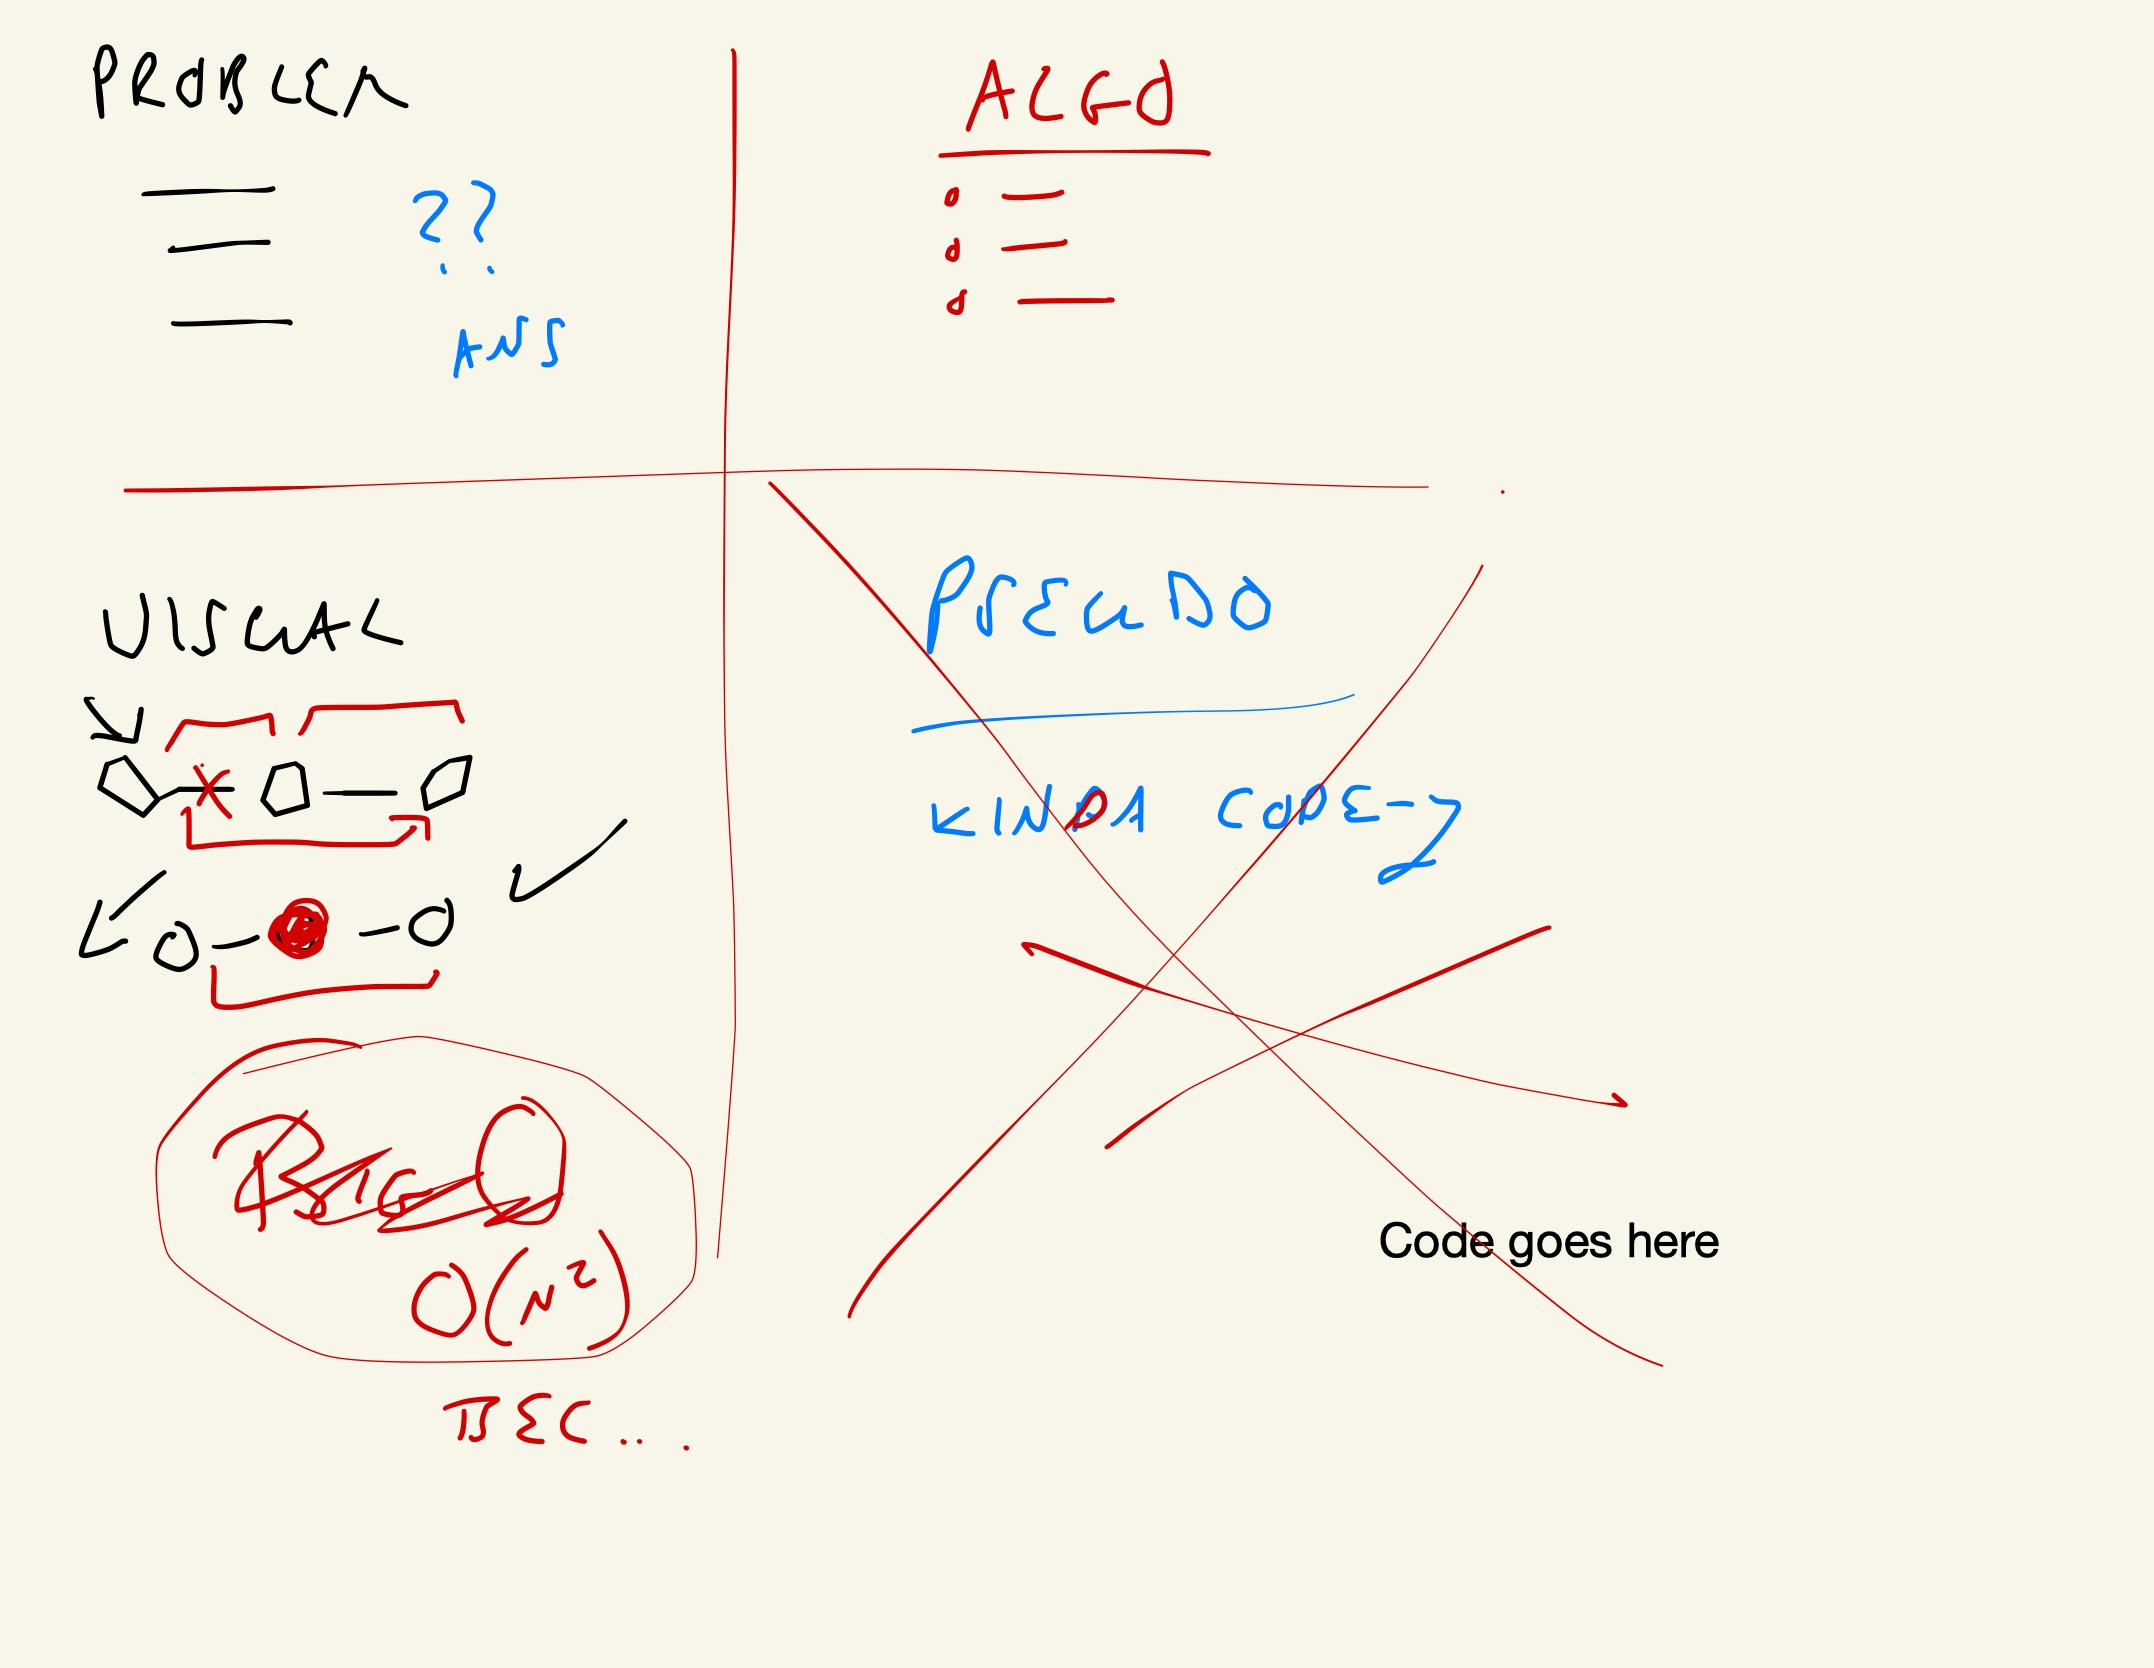 PROBLEM
??
ANS
ALGO
VISUAL
BIG O
O(N²)
BEC...
PSEUDO
KINDA CODE-y
Code goes here